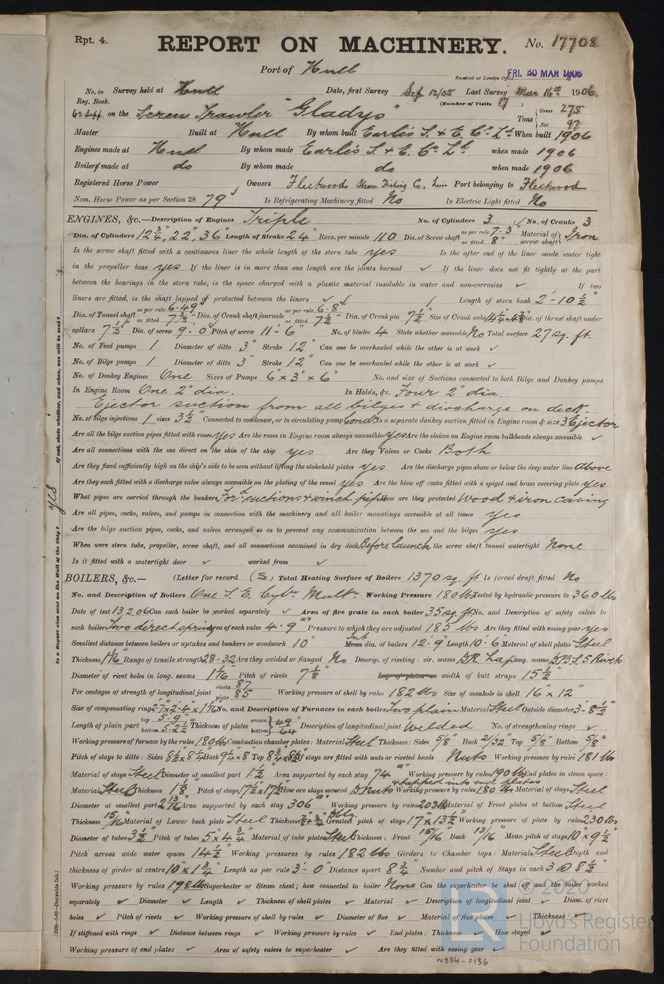 Rpt. 4.
REPORT ON MACHINERY. No. 17708
Port of Hull
Received at London Office FRI. 30 MAR 1906
No. in Survey held at Hull Date, first Survey Sep 12/05 Last Survey Mar 16th 1906
Reg. Book. (Number of Visits 17)
on the Screw Trawler "Gladys" Tons Gross 275 Net 97
Master Built at Hull By whom built Earle's S. & E. Co. Ld. When built 1906
Engines made at Hull By whom made Earle's S. & E. Co. Ld. when made 1906
Boilers made at do By whom made do when made 1906
Registered Horse Power Owners Fleetwood Steam Fishing Co, Port belonging to Fleetwood
Nom. Horse Power as per Section 28 79 Is Refrigerating Machinery fitted No Is Electric Light fitted No
ENGINES, &c.—Description of Engines Triple No. of Cylinders 3 No. of Cranks 3
Dia. of Cylinders 12 3/4", 22", 36" Length of Stroke 24" Revs. per minute 110 Dia. of Screw shaft as per rule 7.3 as fitted 8" Material of screw shaft Iron
Is the screw shaft fitted with a continuous liner the whole length of the stern tube yes Is the after end of the liner made water tight
in the propeller boss yes If the liner is in more than one length are the joints burned ✓ If the liner does not fit tightly at the part
between the bearings in the stern tube, is the space charged with a plastic material insoluble in water and non-corrosive ✓ If two
liners are fitted, is the shaft lapped or protected between the liners ✓ Length of stern bush 2'-10 1/2"
Dia. of Tunnel shaft as per rule 6.49 as fitted 7 3/8" Dia. of Crank shaft journals as per rule 6.8 as fitted 7 1/2" Dia. of Crank pin 7 1/2" Size of Crank webs Dia. of thrust shaft under
collars 7 1/2" Dia. of screw 9'-0" Pitch of screw 11'-6" No. of blades 4 State whether moveable No Total surface 27 sq. ft.
No. of Feed pumps 1 Diameter of ditto 3" Stroke 12" Can one be overhauled while the other is at work ✓
No. of Bilge pumps 1 Diameter of ditto 3" Stroke 12" Can one be overhauled while the other is at work ✓
No. of Donkey Engines One Sizes of Pumps 6" x 3" x 6" No. and size of Suctions connected to both Bilge and Donkey pumps
In Engine Room One 2" dia. In Holds, &c. Four 2" dia.
Ejector suction from all bilges & discharge on deck.
No. of bilge injections 1 sizes 3 1/2" Connected to condenser, or to circulating pump Cond. Is a separate donkey suction fitted in Engine room & size 3" Ejector
Are all the bilge suction pipes fitted with roses yes Are the roses in Engine room always accessible yes Are the sluices on Engine room bulkheads always accessible ✓
Are all connections with the sea direct on the skin of the ship yes Are they Valves or Cocks Both
Are they fixed sufficiently high on the ship's side to be seen without lifting the stokehold plates yes Are the discharge pipes above or below the deep water line above
Are they each fitted with a discharge valve always accessible on the plating of the vessel yes Are the blow off cocks fitted with a spigot and brass covering plate yes
What pipes are carried through the bunkers For suctions & winch pipes How are they protected Wood & iron casing
Are all pipes, cocks, valves, and pumps in connection with the machinery and all boiler mountings accessible at all times yes
Are the bilge suction pipes, cocks, and valves arranged so as to prevent any communication between the sea and the bilges yes
When were stern tube, propeller, screw shaft, and all connections examined in dry dock Before launch Is the screw shaft tunnel watertight None
Is it fitted with a watertight door ✓ worked from ✓
BOILERS, &c.— (Letter for record (S)) Total Heating Surface of Boilers 1370 sq. ft. Is forced draft fitted No
No. and Description of Boilers One S. E. Cyl. Mult. Working Pressure 180 lbs Tested by hydraulic pressure to 360 lbs
Date of test 13.2.06 Can each boiler be worked separately ✓ Area of fire grate in each boiler 35 sq. ft. No. and Description of safety valves to
each boiler Two direct spring Area of each valve 4.9" Pressure to which they are adjusted 185 lbs Are they fitted with easing gear yes
Smallest distance between boilers or uptakes and bunkers or woodwork 10" Int dia. of boilers 12'-9" Length 10'-6" Material of shell plates Steel
Thickness 1 1/16" Range of tensile strength 28-32 Are they welded or flanged No Descrip. of riveting: cir. seams D.R. Lap long. seams D.B.S. 5 Rivets
Diameter of rivet holes in long. seams 1 1/16" Pitch of rivets 7 1/8" Lap of plates or width of butt straps 15 1/2"
Per centages of strength of longitudinal joint rivets 87 plate 85 Working pressure of shell by rules 182 lbs Size of manhole in shell 16" x 12"
Size of compensating ring No. and Description of Furnaces in each boiler Two plain Material Steel Outside diameter 3'-8 1/2"
Length of plain part top 5'-9" bottom Thickness of plates crown bottom 49/64" Description of longitudinal joint Welded No. of strengthening rings ✓
Working pressure of furnace by the rules 180 lbs Combustion chamber plates: Material Steel Thickness: Sides 5/8" Back 21/32" Top 5/8" Bottom 5/8"
Pitch of stays to ditto: Sides 8 1/2 x 8 1/4 Back 9 1/4 x 8 Top If stays are fitted with nuts or riveted heads Nuts Working pressure by rules 181 lbs
Material of stays Steel Diameter at smallest part 1 1/2 Area supported by each stay 74" Working pressure by rules 190 lbs End plates in steam space:
Material Steel Thickness 1 1/8" Pitch of stays 17 1/2 x 17 1/2 How are stays secured D Nuts Working pressure by rules 180 lbs Material of stays Steel
Diameter at smallest part Area supported by each stay 306" Working pressure by rules 203 lbs Material of Front plates at bottom Steel
Thickness 15/16" Material of Lower back plate Steel Thickness Greatest pitch of stays 17 x 13 1/2" Working pressure of plate by rules 230 lbs
Diameter of tubes 3 1/2" Pitch of tubes 5" x 4 3/4" Material of tube plates Steel Thickness: Front 15/16" Back 13/16" Mean pitch of stays 10 x 9 1/2"
Pitch across wide water spaces 14 1/2" Working pressures by rules 182 lbs Girders to Chamber tops: Material Steel Depth and
thickness of girder at centre 10" x 1 3/4" Length as per rule 3'-0" Distance apart 8 3/4" Number and pitch of Stays in each 3 @ 8 1/2"
Working pressure by rules 198 lbs Superheater or Steam chest; how connected to boiler None Can the superheater be shut off and the boiler worked
separately ✓ Diameter ✓ Length ✓ Thickness of shell plates ✓ Material ✓ Description of longitudinal joint ✓ Diam. of rivet
holes ✓ Pitch of rivets ✓ Working pressure of shell by rules ✓ Diameter of flue ✓ Material of flue plates ✓ Thickness ✓
If stiffened with rings ✓ Distance between rings ✓ Working pressure by rules ✓ End plates: Thickness ✓ How stayed ✓
Working pressure of end plates ✓ Area of safety valves to superheater ✓ Are they fitted with easing gear ✓
W884-0136
© 2020
Lloyd's Register
Foundation